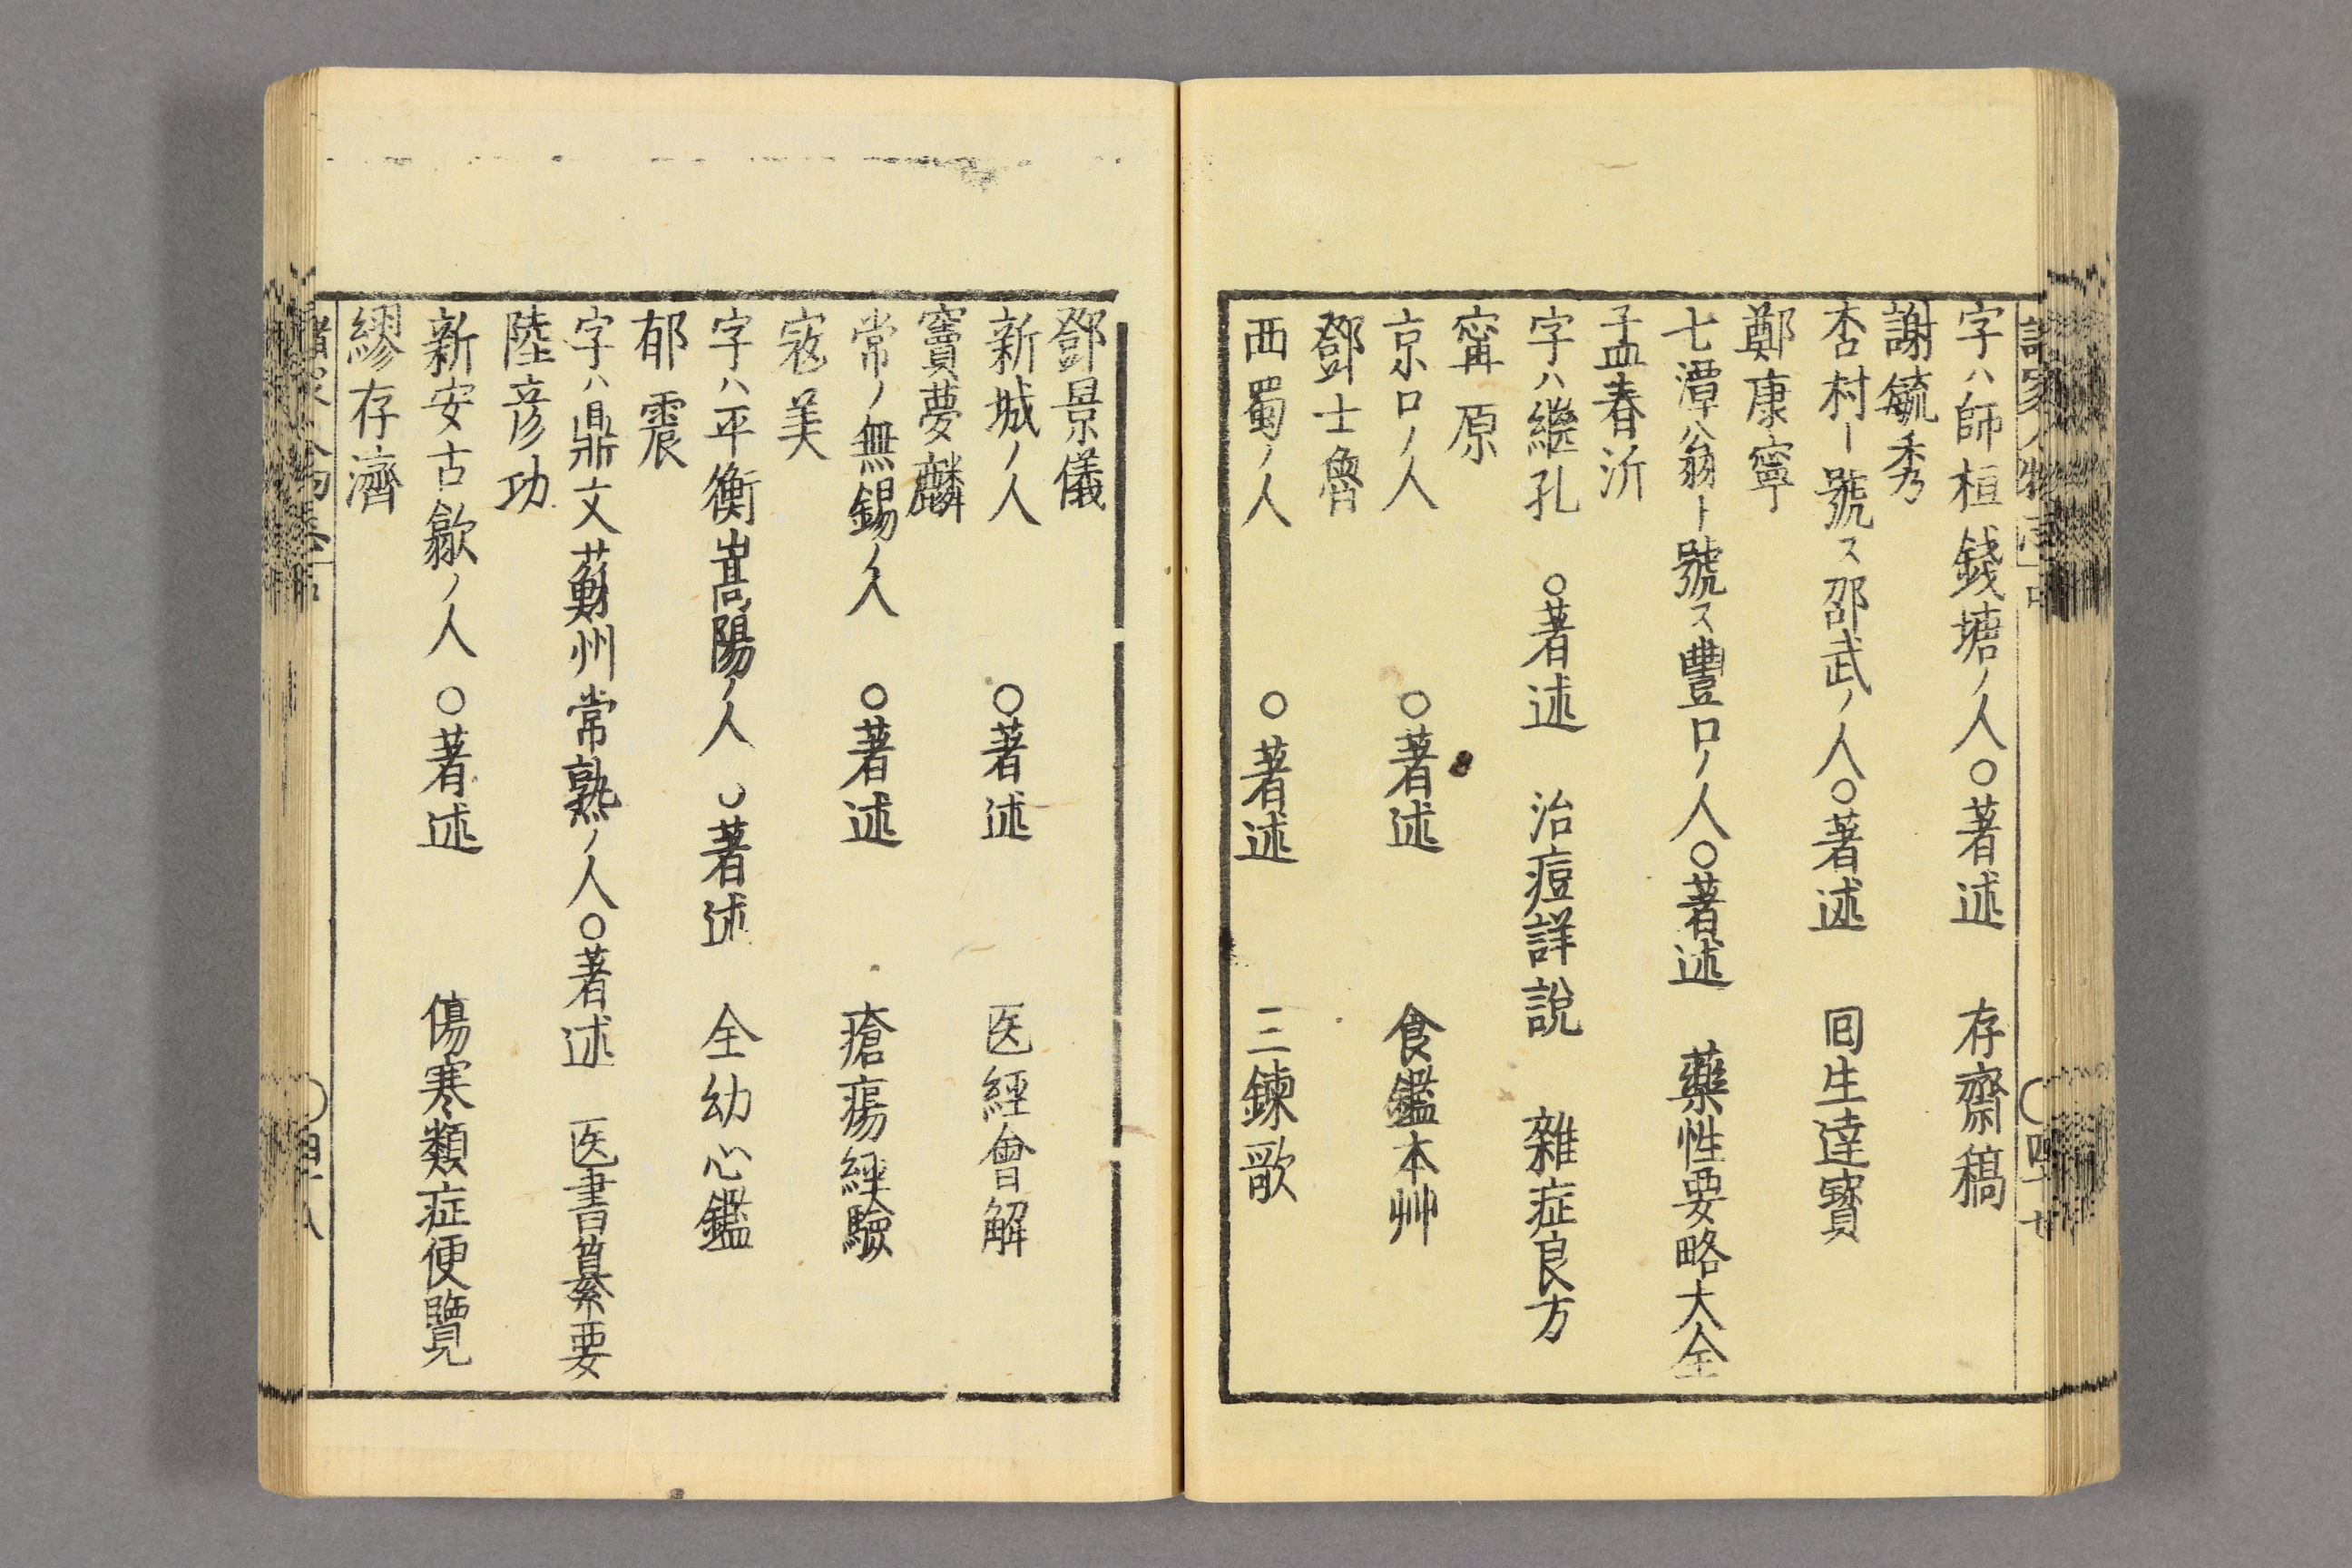 字ハ師桓錢塘ノ人〇著述　存齋稿
謝毓秀
杏村ト號ス邵武ノ人〇著述　回生達寳
鄭康寧
七潭翁ト號ス豐口ノ人〇著述　藥性要略大全
孟春沂
字ハ繼孔　〇著述　治痘詳說　雜症良方
甯原
京口ノ人　〇著述　食鑑本艸
鄧士魯
西蜀ノ人　〇著述　三鍊歌
鄧景儀
新城ノ人　〇著述　医經會解
竇夢麟
常ノ無錫ノ人　〇著述　瘡瘍經驗
寇美
字ハ平衡嵩陽ノ人〇著述　全幼心鑑
郁震
字ハ鼎文蘇州常熟ノ人〇著述　医書纂要
陸彦功
新安古歙ノ人　〇著述　傷寒類症便覽
繆存濟